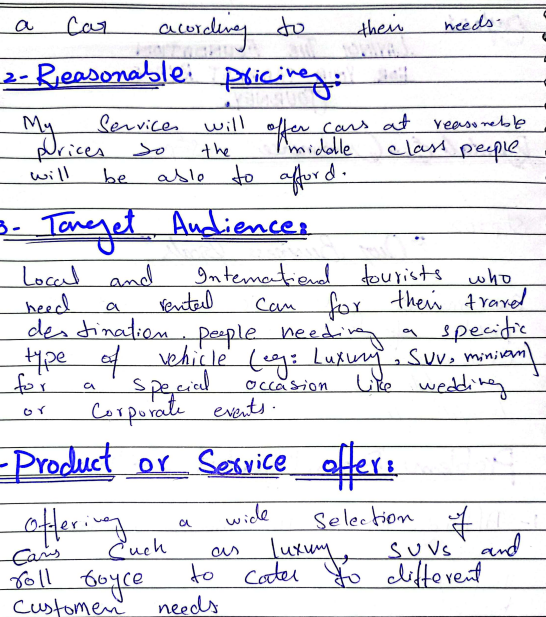 a Car acording to their needs.
2- Reasonable Pricing:
My Services will offer cars at reasoneble
prices so the middle class people
will be able to afford.
3- Target Audience:
Local and International tourists who
need a rented car for their travel
destination. people needing a specific
type of vehicle (eg: Luxury, SUV, minivan)
for a special occasion like wedding
or Corporate events.
-Product or Service offer:
Offering a wide Selection of
Cars Such as luxury, SUVs and
roll royce to cater to different
Customer needs